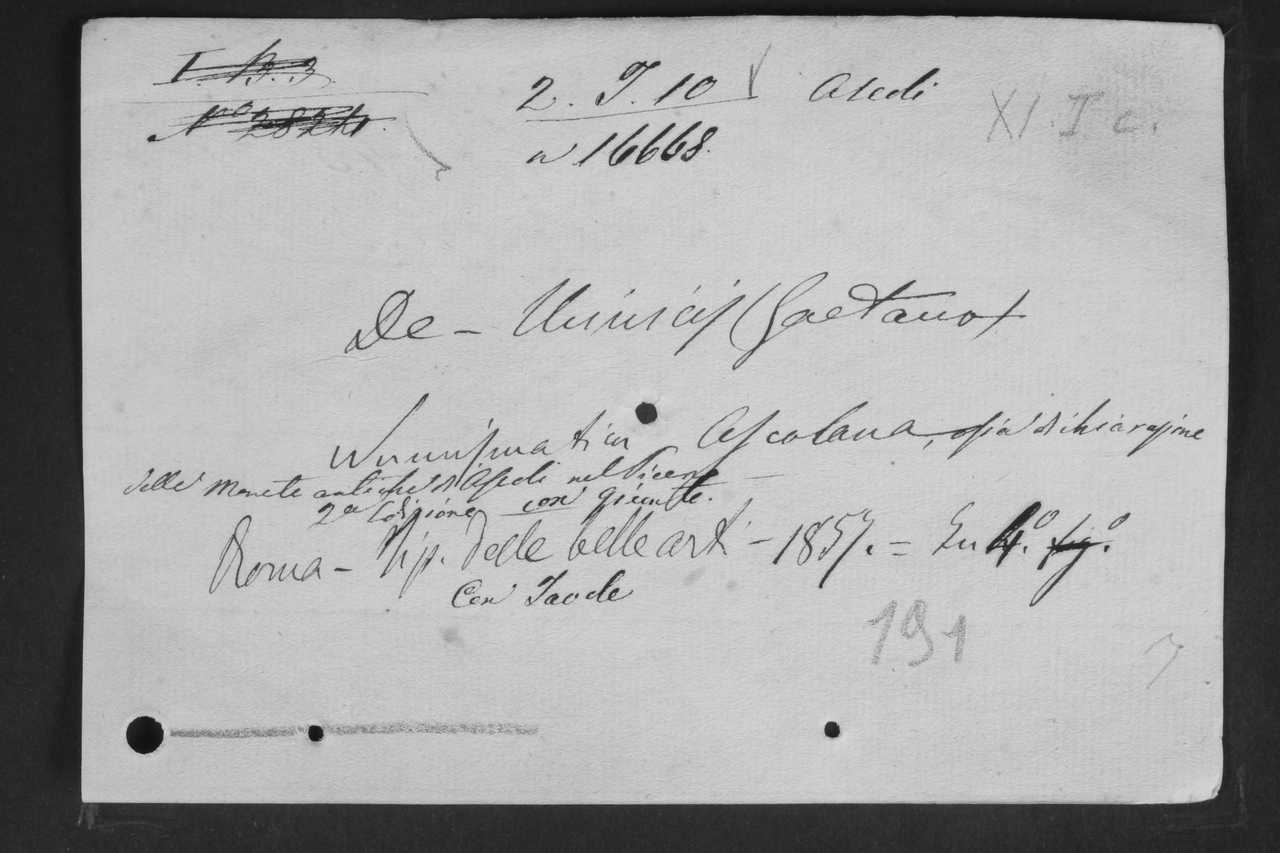 I. 13. 3
2. I. 10 Ascoli XI. I c.
N.o 2824
n 16668
De - Minicis (Gaetano)
Numismatica Ascolana, ossia dichiarazione
delle monete antiche di Ascoli nel Piceno
2a Edizione con giunte.
Roma - Tip. delle belle arti - 1857. = In 4.o fig.o
Con Tavole
191